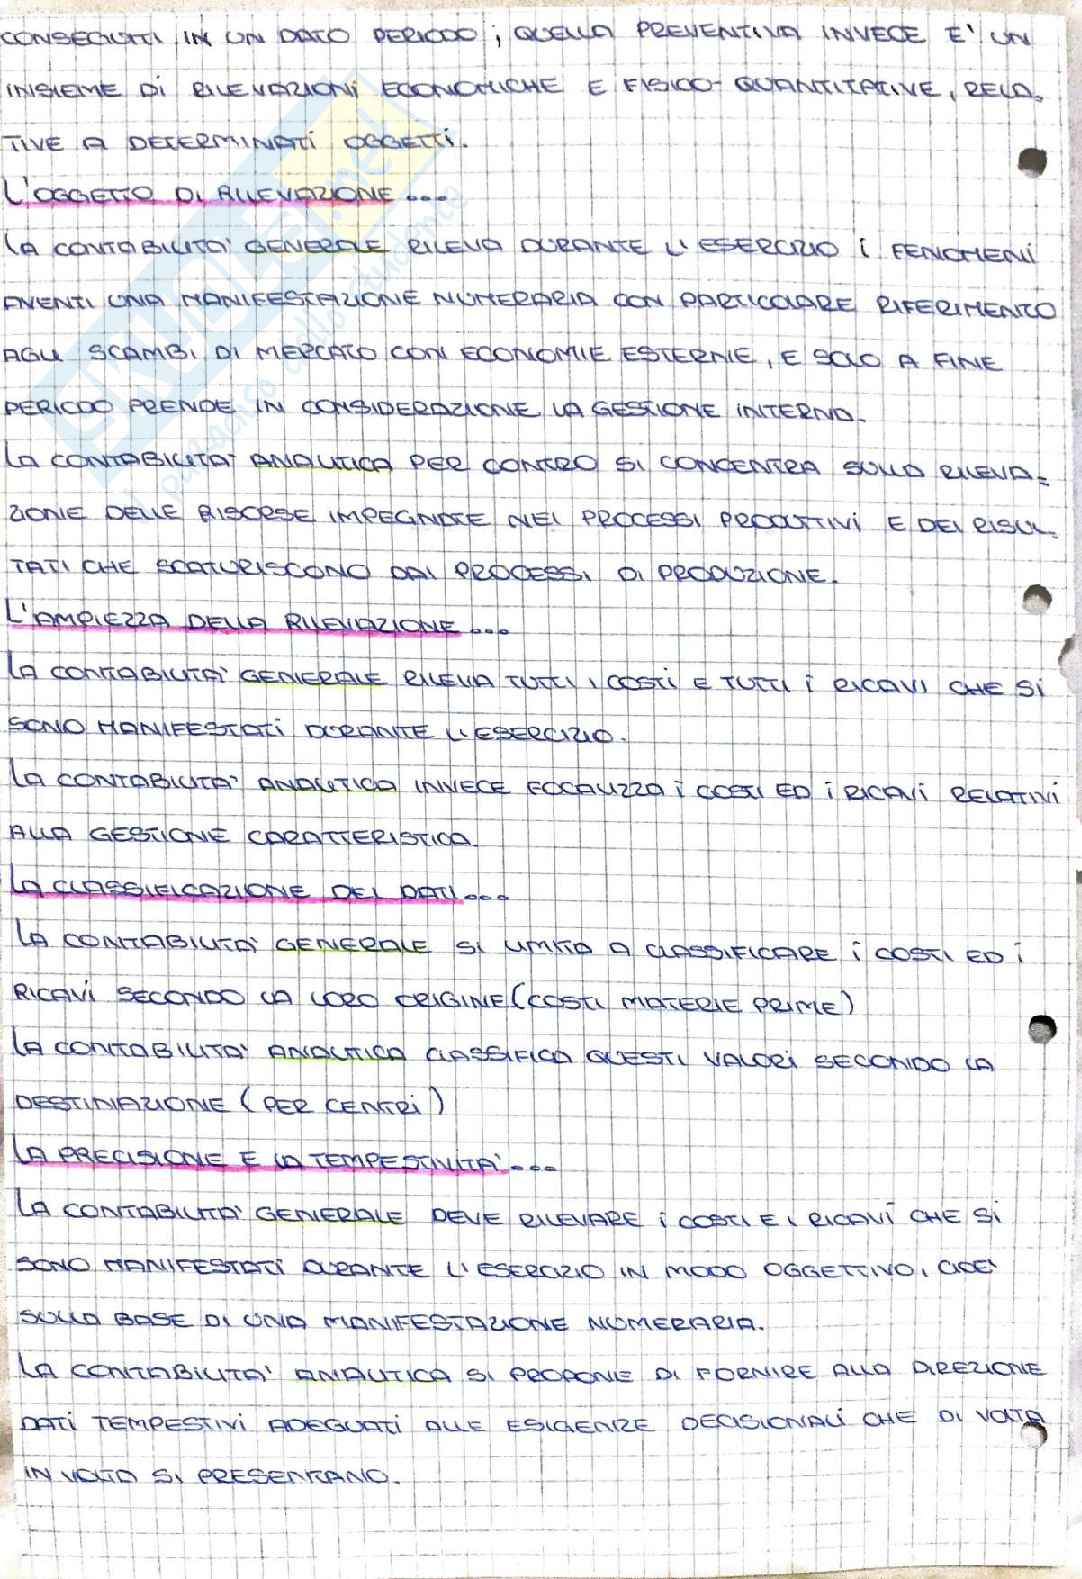 CONSEGUITI IN UN DATO PERIODO; QUELLA PREVENTIVA INVECE E' UN
INSIEME DI RILEVAZIONI ECONOMICHE E FISICO-QUANTITATIVE, RELA=
TIVE A DETERMINATI OGGETTI.
L'OGGETTO DI RILEVAZIONE...
LA CONTABILITA' GENERALE RILEVA DURANTE L'ESERCIZIO I FENOMENI
AVENTI UNA MANIFESTAZIONE NUMERARIA CON PARTICOLARE RIFERIMENTO
AGLI SCAMBI DI MERCATO CON ECONOMIE ESTERNE, E SOLO A FINE
PERIODO PRENDE IN CONSIDERAZIONE LA GESTIONE INTERNA.
LA CONTABILITA' ANALITICA PER CONTRO SI CONCENTRA SULLA RILEVA=
ZIONE DELLE RISORSE IMPEGNATE NEI PROCESSI PRODUTTIVI E DEI RISUL=
TATI CHE SCATURISCONO DAI PROCESSI DI PRODUZIONE.
L'AMPIEZZA DELLA RILEVAZIONE...
LA CONTABILITA' GENERALE RILEVA TUTTI I COSTI E TUTTI I RICAVI CHE SI
SONO MANIFESTATI DURANTE L'ESERCIZIO.
LA CONTABILITA' ANALITICA INVECE FOCALIZZA I COSTI ED I RICAVI RELATIVI
ALLA GESTIONE CARATTERISTICA.
LA CLASSIFICAZIONE DEI DATI...
LA CONTABILITA' GENERALE SI LIMITA A CLASSIFICARE I COSTI ED I
RICAVI SECONDO LA LORO ORIGINE (COSTI MATERIE PRIME)
LA CONTABILITA' ANALITICA CLASSIFICA QUESTI VALORI SECONDO LA
DESTINAZIONE (PER CENTRI)
LA PRECISIONE E LA TEMPESTIVITA'...
LA CONTABILITA' GENERALE DEVE RILEVARE I COSTI E I RICAVI CHE SI
SONO MANIFESTATI DURANTE L'ESERCIZIO IN MODO OGGETTIVO, CIOE'
SULLA BASE DI UNA MANIFESTAZIONE NUMERARIA.
LA CONTABILITA' ANALITICA SI PROPONE DI FORNIRE ALLA DIREZIONE
DATI TEMPESTIVI ADEGUATI ALLE ESIGENZE DECISIONALI CHE DI VOLTA
IN VOLTA SI PRESENTANO.